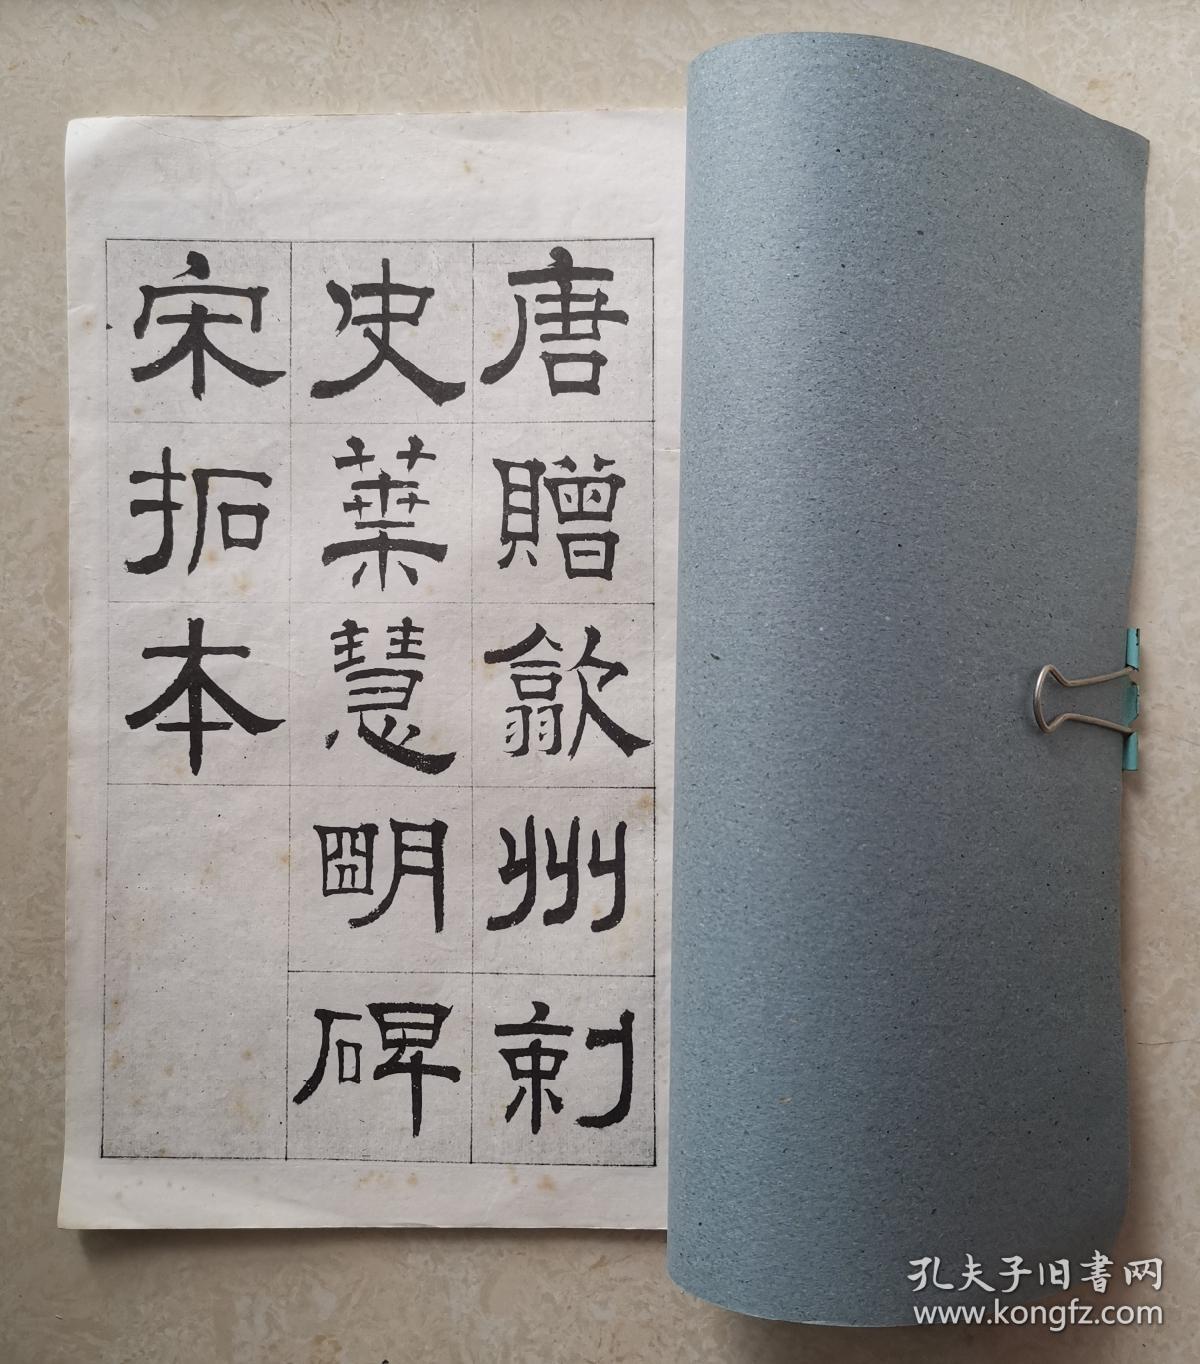 唐贈歙州刺
史葉慧明碑
宋拓本
孔夫子旧書网
www.kongfz.com